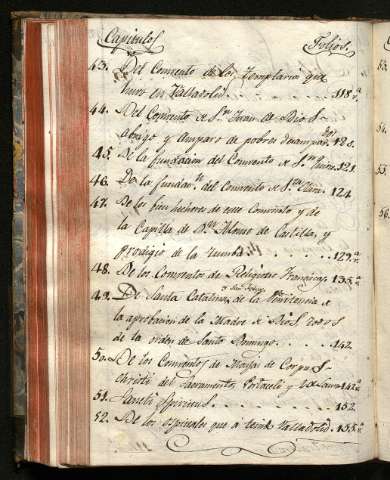 Capitulos Folios.
43. Del Convento de los Templarios que
huvo en Valladolid. 118.
44. Del Convento de S.n Juan de Dios
abrigo y Amparo de pobres desamparados 120.
45. De la fundacion del Convento de S.n 121
46. De la fundaz.n del Convento de S.ta Clara. 124
47. De los bien hechores de este Convento y de
la Capilla de D.n Alonso de Castilla, y
prodigio de la tumba. 129.
48. De los Conventos de Religiosas Franciscas 135.
49. De Santa Catalina de la Penitencia
la aprobacion de la Madre de Dios, todos
de la orden de Santo Domingo. 142
50. De los Conventos de Monjas de Corpus
christi del Sacramento, Portaceli y
51. Sancti Spiritus. 152
52. De los ospitales que á tenido Valladolid. 155.